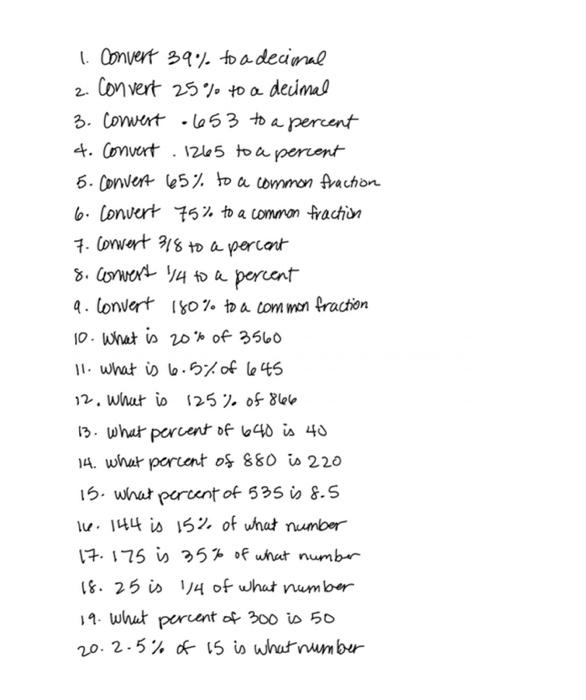 1. Convert 39% to a decimal
2. Convert 25% to a decimal
3. Convert .653 to a percent
4. Convert .1265 to a percent
5. Convert 65% to a common fraction
6. Convert 75% to a common fraction
7. Convert 3/8 to a percent
8. Convert 1/4 to a percent
9. Convert 180% to a common fraction
10. What is 20% of 3560
11. What is 6.5% of 645
12. What is 125% of 866
13. What percent of 640 is 40
14. What percent of 880 is 220
15. What percent of 535 is 8.5
16. 144 is 15% of what number
17. 175 is 35% of what number
18. 25 is 1/4 of what number
19. What percent of 300 is 50
20. 2.5% of 15 is what number